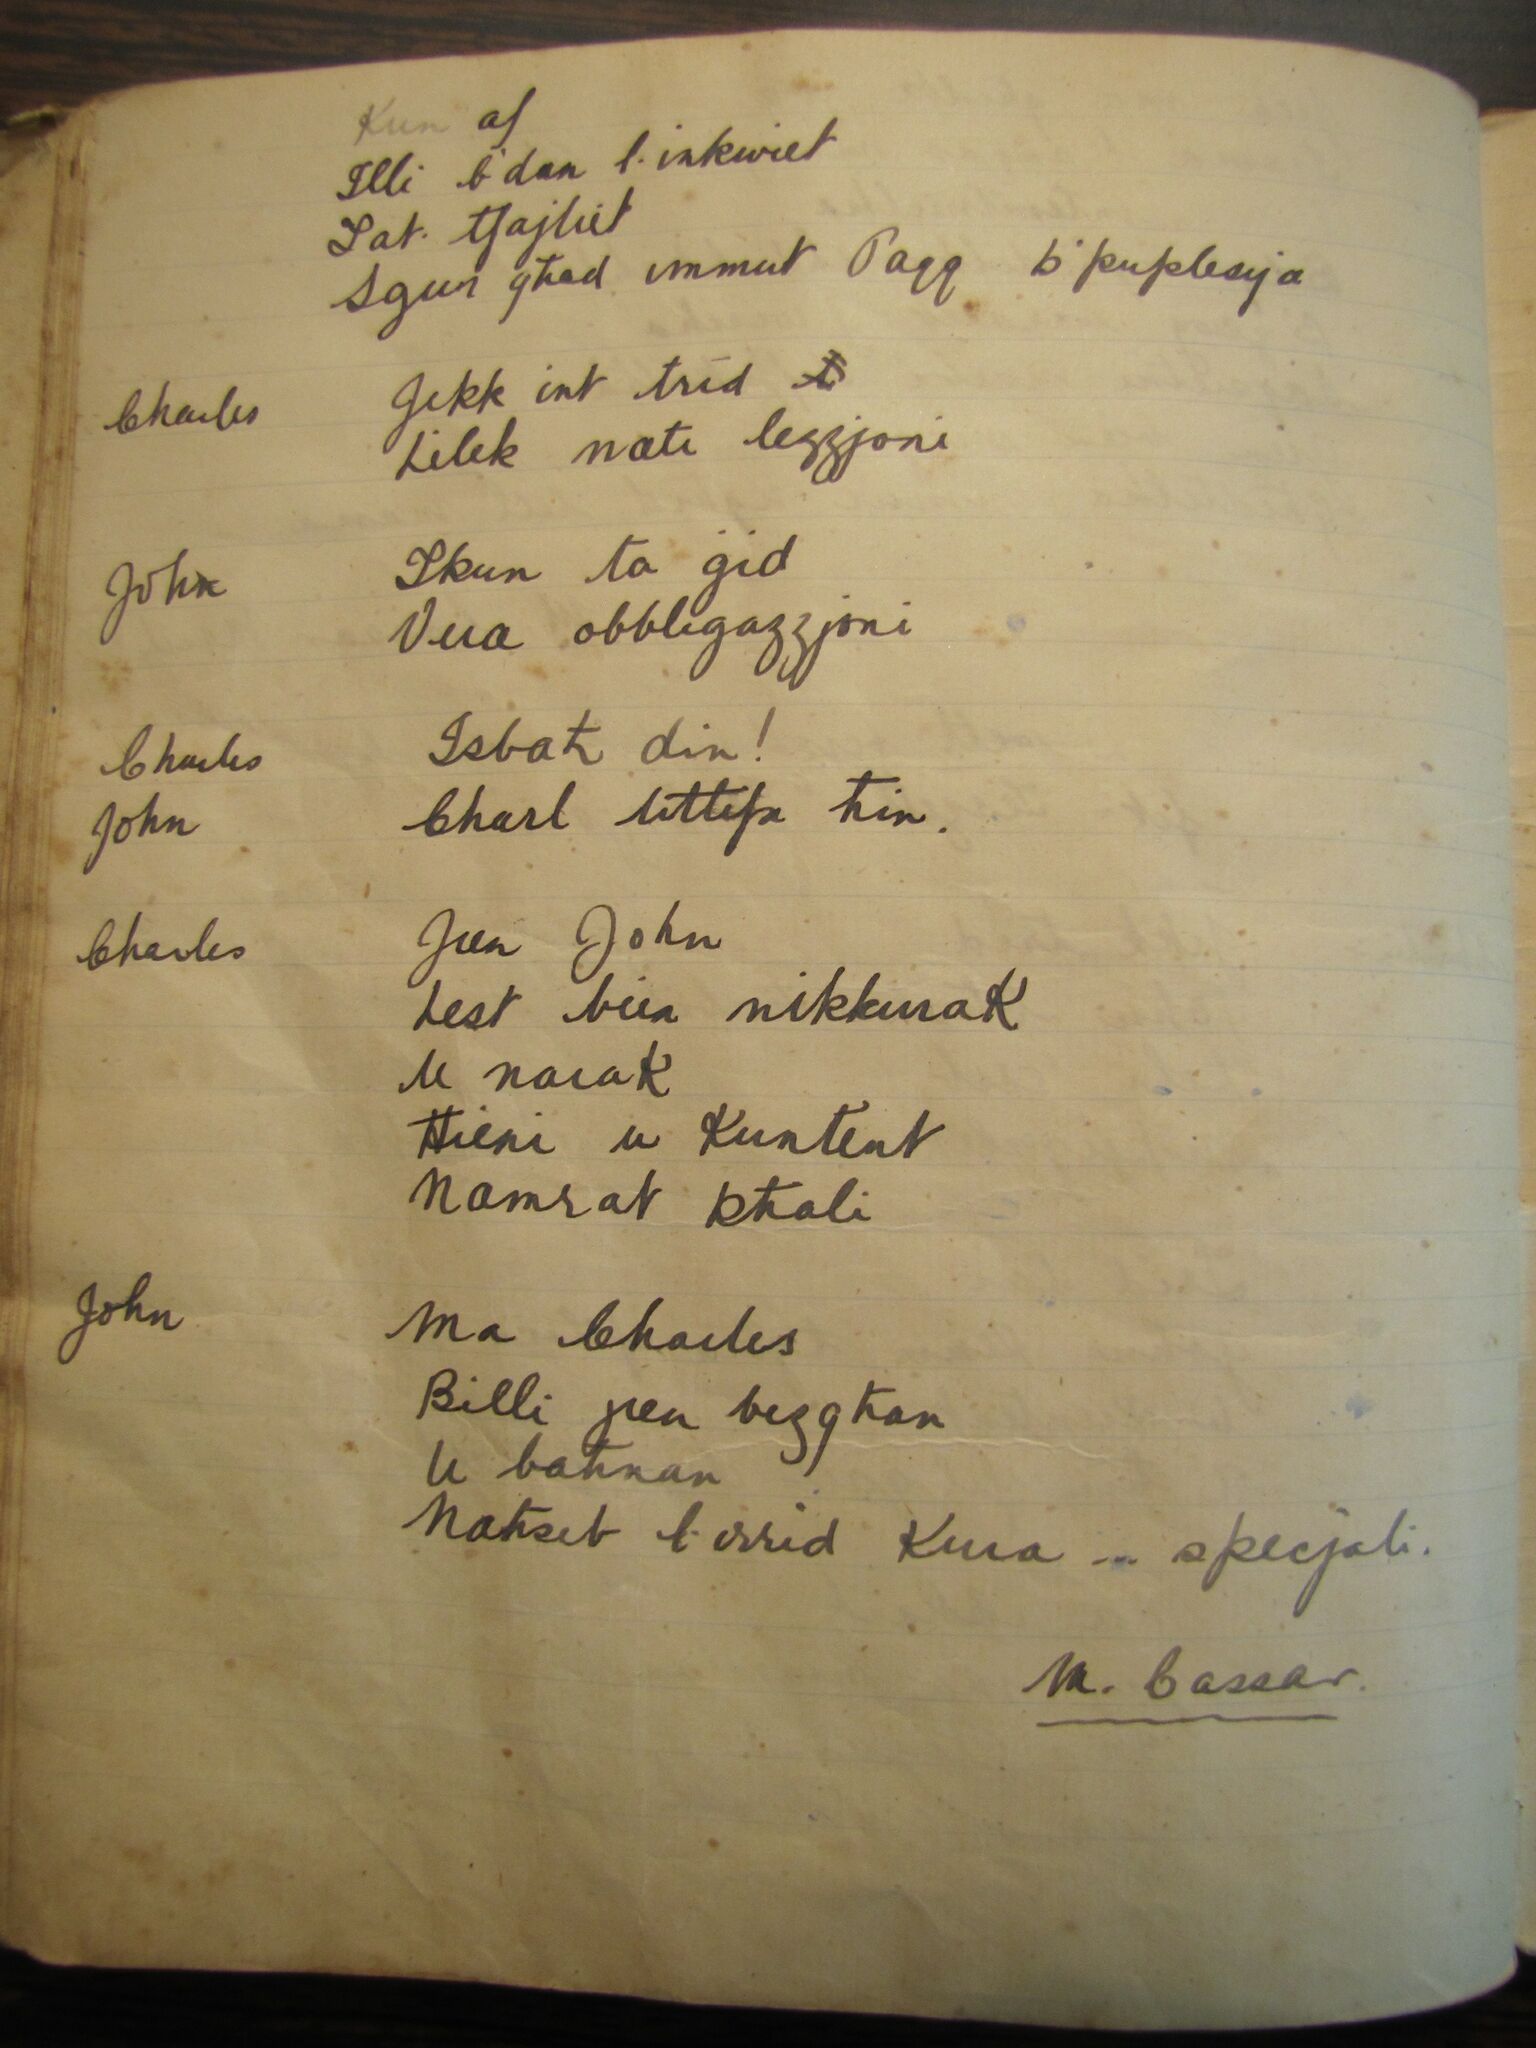 Kun af
Illi b'dan l. inkwiet
Jat. tfajliet
Sgur għad immut Paqq b'puplesija
Charles Jekk int trid
Lilek nati lezzjoni
John Ikun ta ġid
Vera obbligazzjoni
Charles Isbaħ din!
John Charl littifa ħin.
Charles Jien John
Lest biex nikkurak
U narak
Ħieni u Kuntent
Nomrot ktali
John Ma Charles
Billi jien bezgħan
U batnan
Naħseb l. irrid Kura ... specjali.
M. Cassar.